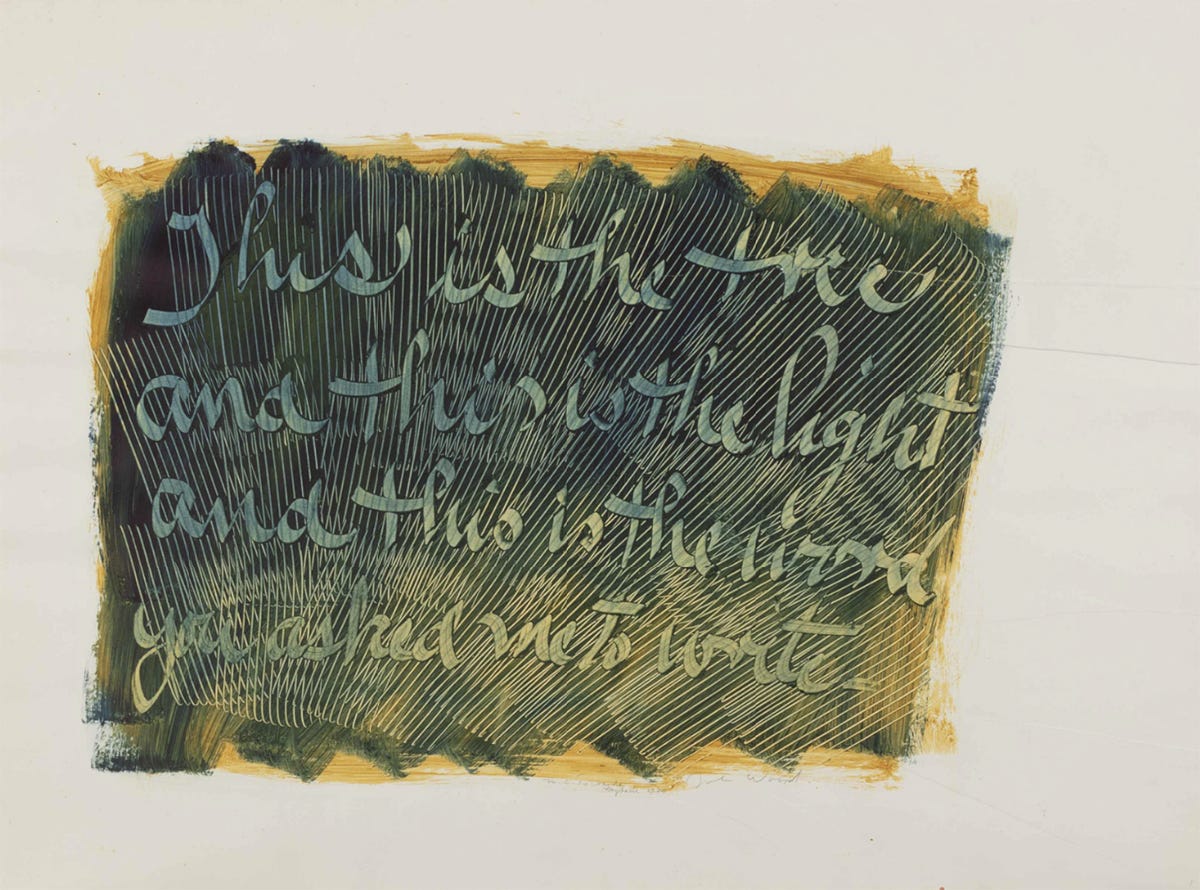 This is the tree
and this is the light
and this is the word
you asked me to write
Wood